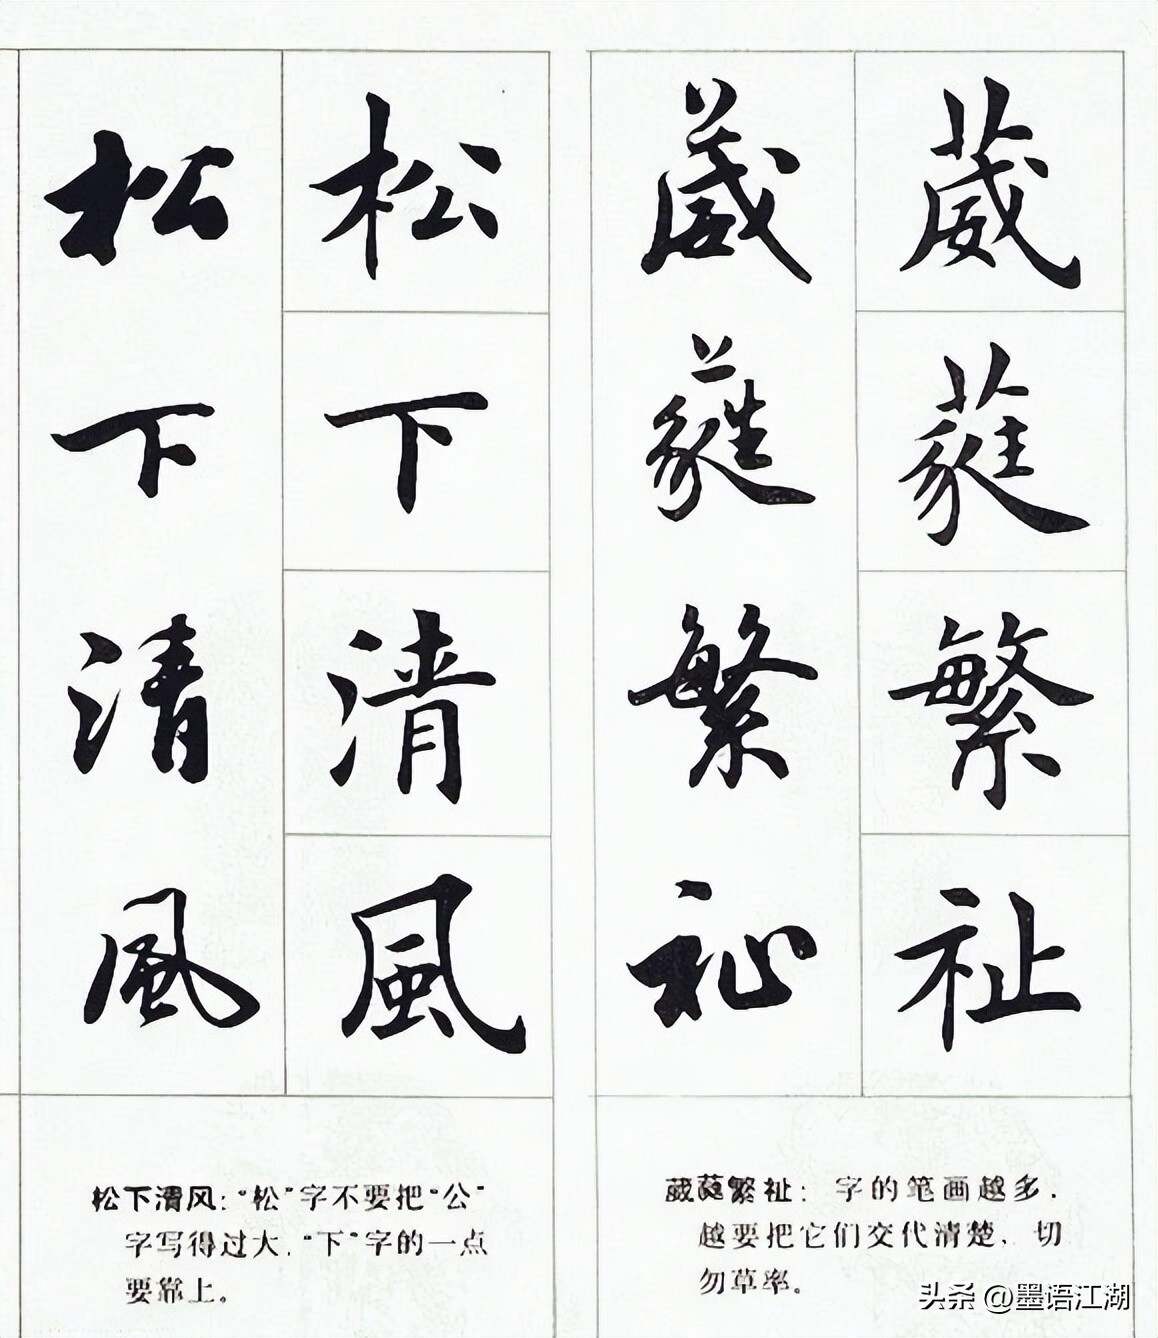 葳蕤繁祉
葳蕤繁祉
松下清風
松下清風
葳蕤繁祉：字的笔画越多，
越要把它们交代清楚，切
勿草率。
松下清风：“松”字不要把“公”
字写得过大，“下”字的一点
要靠上。
头条 @墨语江湖